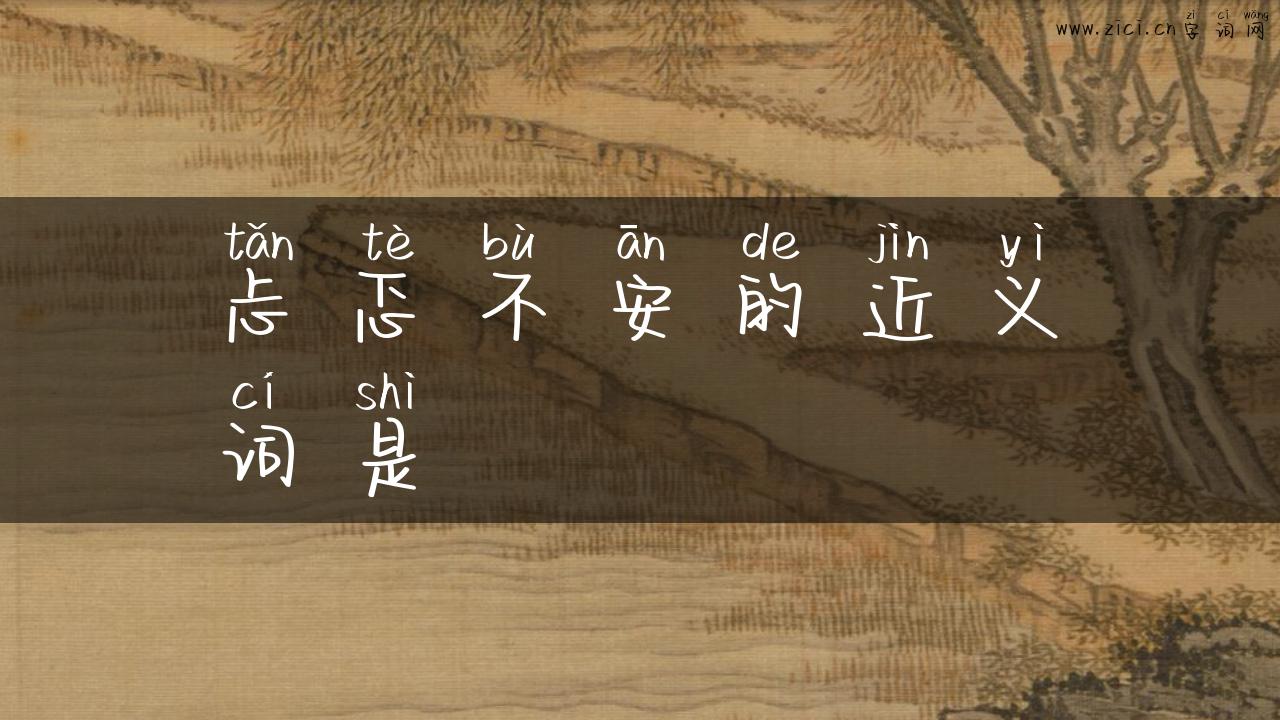 zì cí wǎng
www.zici.cn字词网
tǎn tè bù ān de jìn yì
忐忑不安的近义
cí shì
词是